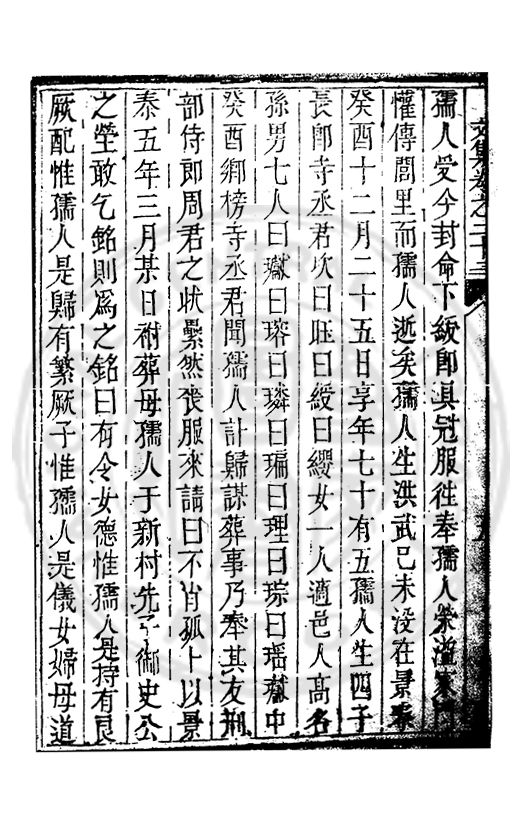 文集卷之二十三
孺人受今封命下綬即具冠服徃奉孺人榮溢家門
懽傳閭里而孺人逝矣孺人生洪武己未没在景泰
癸酉十二月二十五日享年七十有五孺人生四子
長即寺丞君次曰旺曰綬曰纓女一人適邑人高名
孫男七人曰瓛曰瑢曰璘曰瑞曰理曰琮曰瑶瓛中
癸酉鄉榜寺丞君聞孺人訃歸謀葬事乃奉其友刑
部侍郎周君之狀纍然喪服來請曰不肖孤卜以景
泰五年三月某日祔葬母孺人于新村先子御史公
之塋敢乞銘則爲之銘曰有令女德惟孺人是持有良
厥配惟孺人是歸有繁厥子惟孺人是儀女婦母道